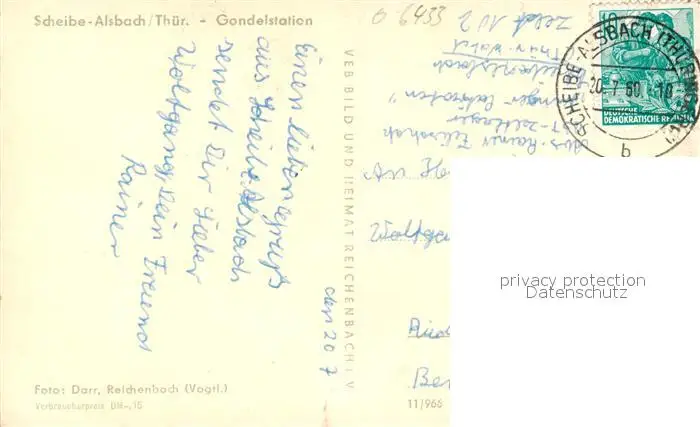 Scheibe-Alsbach/Thür. - Gondelstation
Einen lieben Gruß
aus Scheibe Alsbach
sendet Dir Lieber
Wolfgang, Dein Freund
Rainer
den 20 7
VEB BILD UND HEIMAT REICHENBACH I. V.
Foto: Darr, Reichenbach (Vogtl.)
Verbraucherpreis DM -,15
11/966
o 6433
Zelt 102
Thür. Wald
Abs. Rainer
An H
Wolfga
Ber
10
DEUTSCHE
DEMOKRATISCHE RE
SCHEIBE-ALSBACH (THÜR
20.7.60.-10
b
privacy protection
Datenschutz